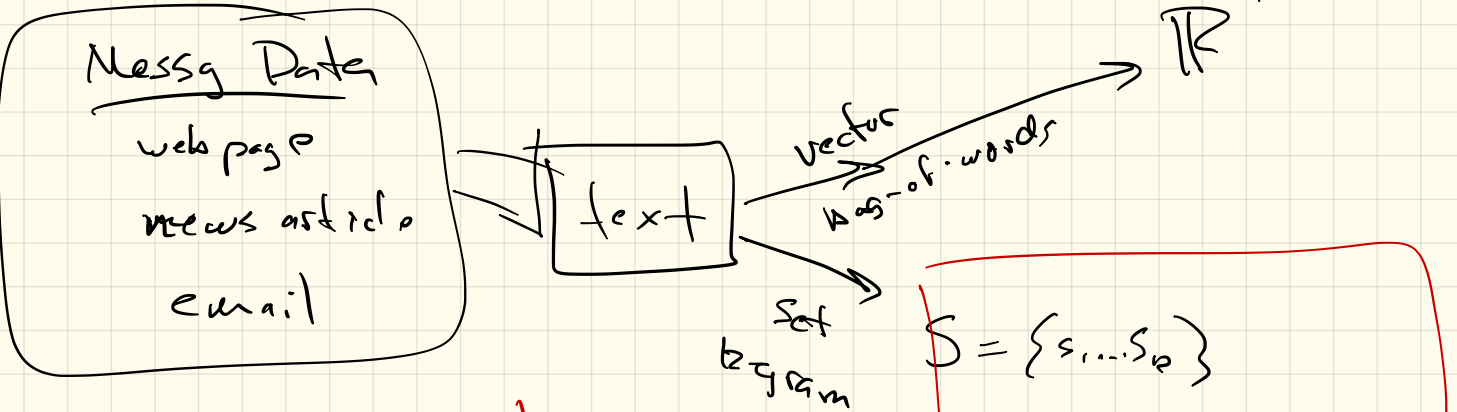 Messy Data
web page
news article
email
text
vector
bag-of-words
ℝ
Set
k-gram
S = {s,...s